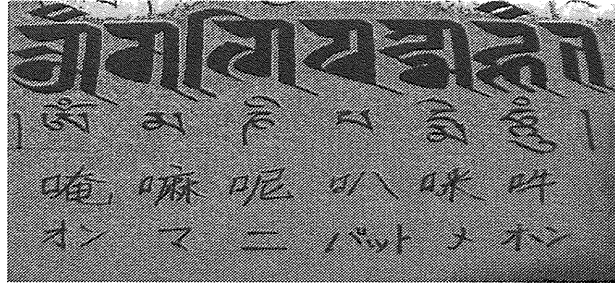 ། ཨོཾ མ ཎི པ དྨེ ཧཱུྃ །
唵 嘛 呢 叭 咪 吽
オン マ ニ バット メ ホン